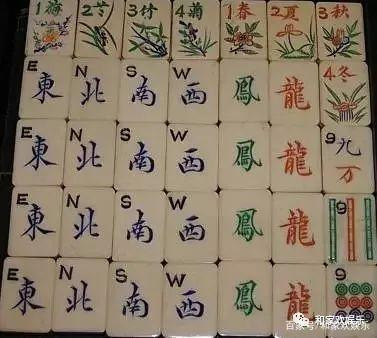 1梅 2 3竹 4菊 1春 2夏 3秋
E東 N北 S南 W西 鳳 龍 4冬
E東 N北 S南 W西 鳳 龍 9九万
E東 N北 S南 W西 鳳 龍 9
E東 N北 S南 W西 鳳 龍 9
和家欢娱乐
百家号/和家欢娱乐